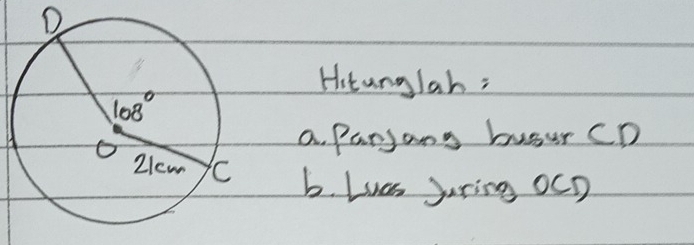 D
108°
O
21cm
C
Hitunglah :
a. Panjang busur CD
b. Luas Juring OCD